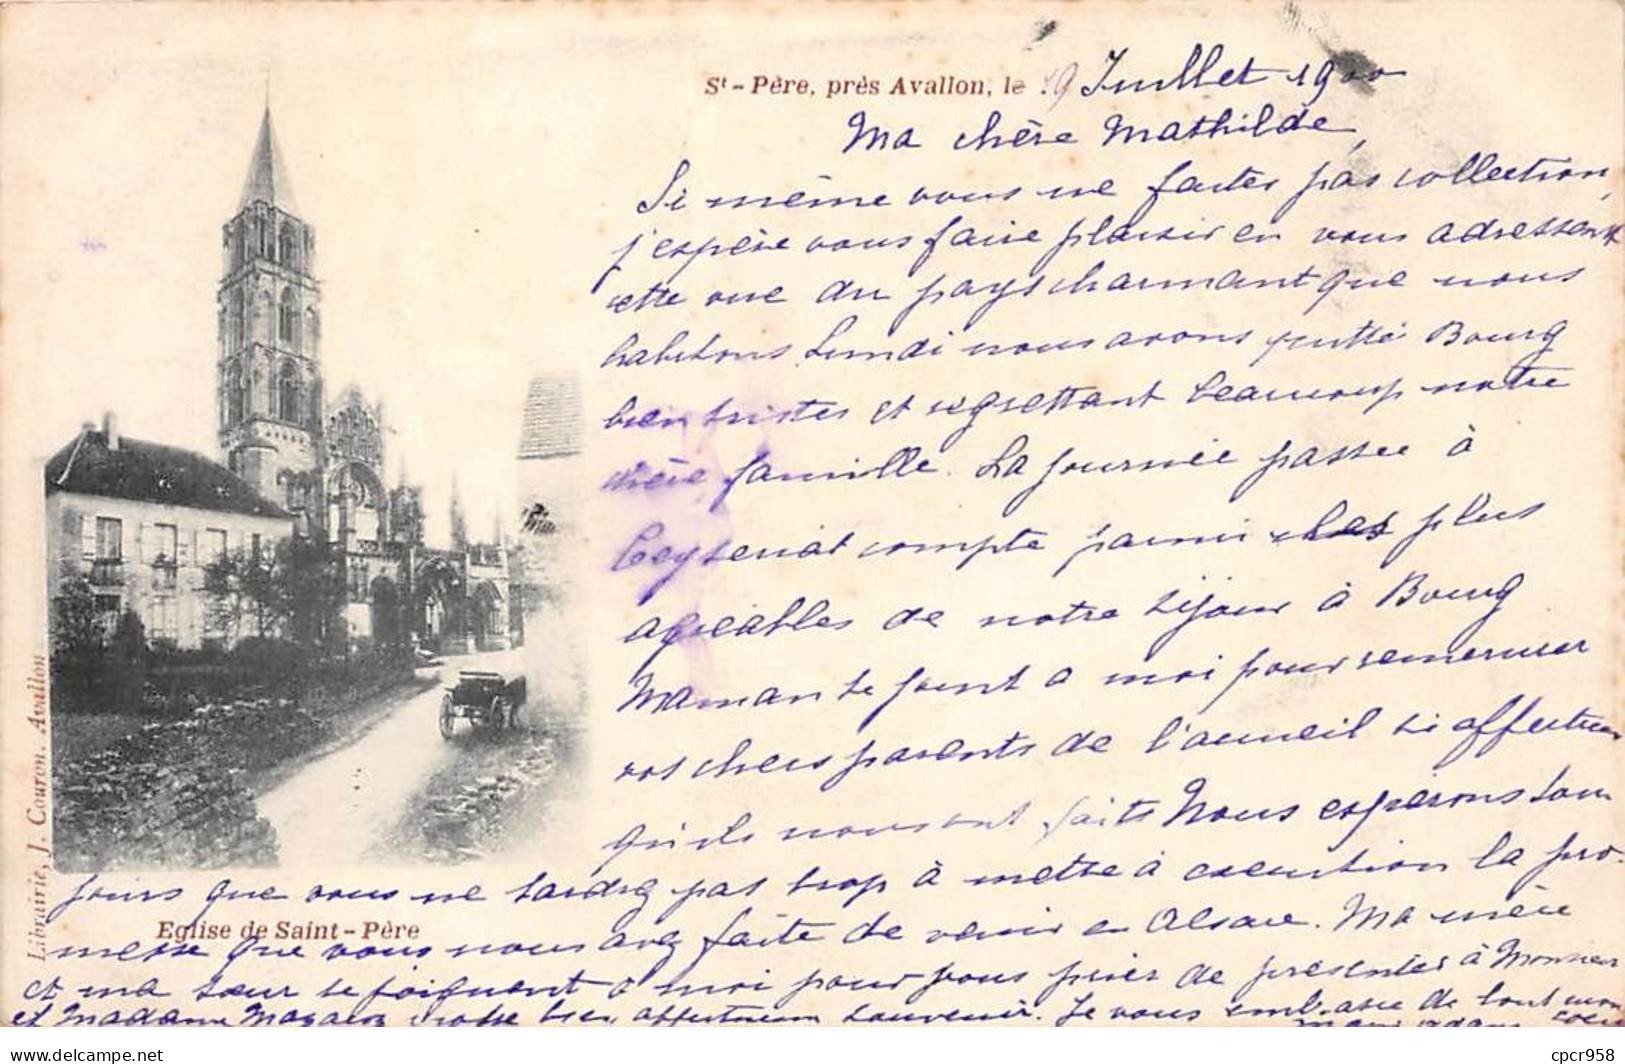 St-Père, près Avallon, le 19 Juillet 1900
Ma chère Mathilde,
Si même vous ne faites pas collection,
j'espère vous faire plaisir en vous adressant
cette vue du pays charmant que nous
habitons. Lundi nous avons quitté Bourg
bien tristes et regrettant beaucoup notre
chère famille. La journée passée à
Ceyseriat compte parmi les plus
agréables de notre séjour à Bourg
Maman se joint à moi pour remercier
vos chers parents de l'accueil si affectueux
qu'ils nous ont faits Nous espérons tou
jours que vous ne tardez pas trop à mettre à exécution la pro-
Eglise de Saint-Père
messe que vous nous avez faite de venir en Alsace. Ma mère
et ma sœur se joignent à moi pour vous prier de présenter à Monsieur
et Madame votre bien affectueux souvenir. Je vous embrasse de tout mon
coeur
Librairie, J. Couron. Avallon
cpcr958